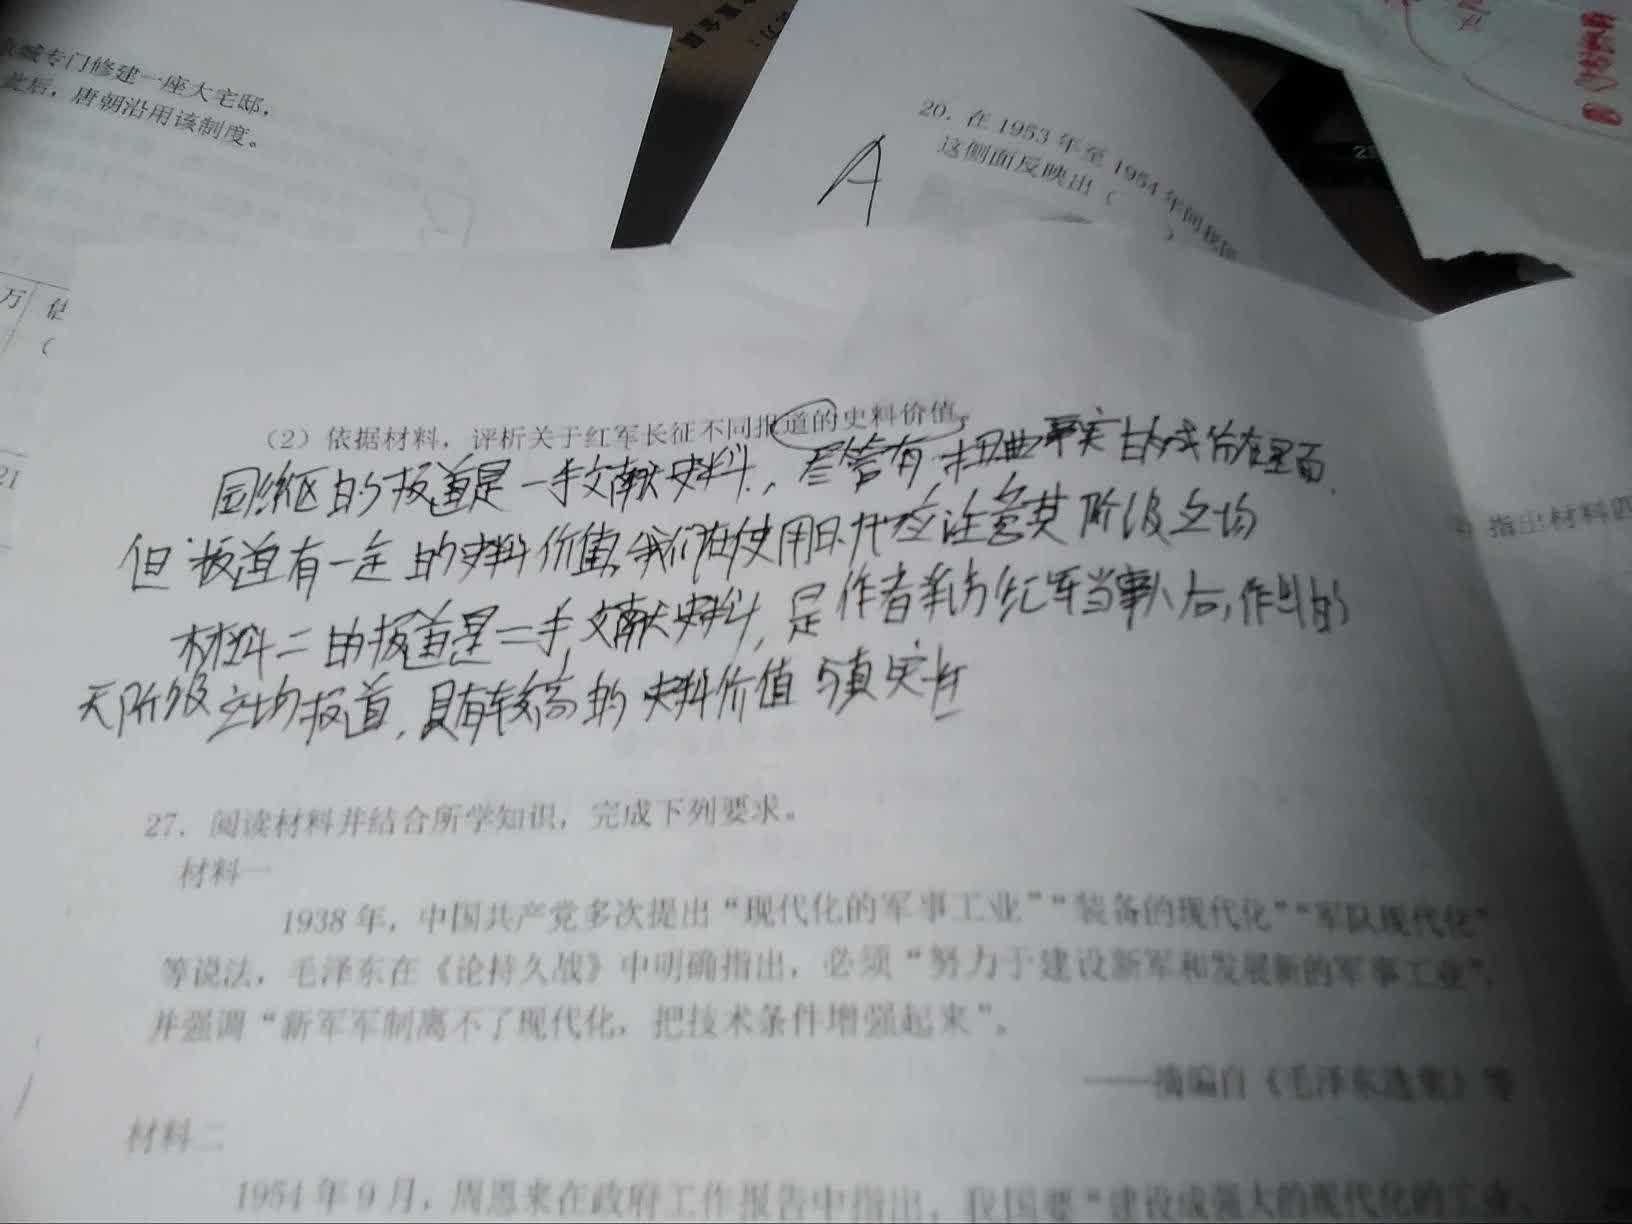 城专门修建一座大宅邸，
此后，唐朝沿用该制度。
A
20. 在1953年至1954年间我国
这侧面反映出（ ）
万 估
（
21
（2）依据材料，评析关于红军长征不同报道的史料价值。
国统区的报道是一手文献史料，尽管有扭曲事实的成份在里面，
但报道有一定的史料价值，我们在使用时应注意其阶级立场
材料二的报道是二手文献史料，是作者采访红军当事人后，作出的
无阶级立场报道，具有较高的史料价值与真实性
27. 阅读材料并结合所学知识，完成下列要求。
材料一
1938年，中国共产党多次提出“现代化的军事工业”“装备的现代化”“军队现代化”
等说法，毛泽东在《论持久战》中明确指出，必须“努力于建设新军和发展新的军事工业”，
并强调“新军军制离不了现代化，把技术条件增强起来”。
——摘编自《毛泽东选集》等
材料二
1954年9月，周恩来在政府工作报告中指出，我国要“建设成强大的现代化的工业、
指出材料四